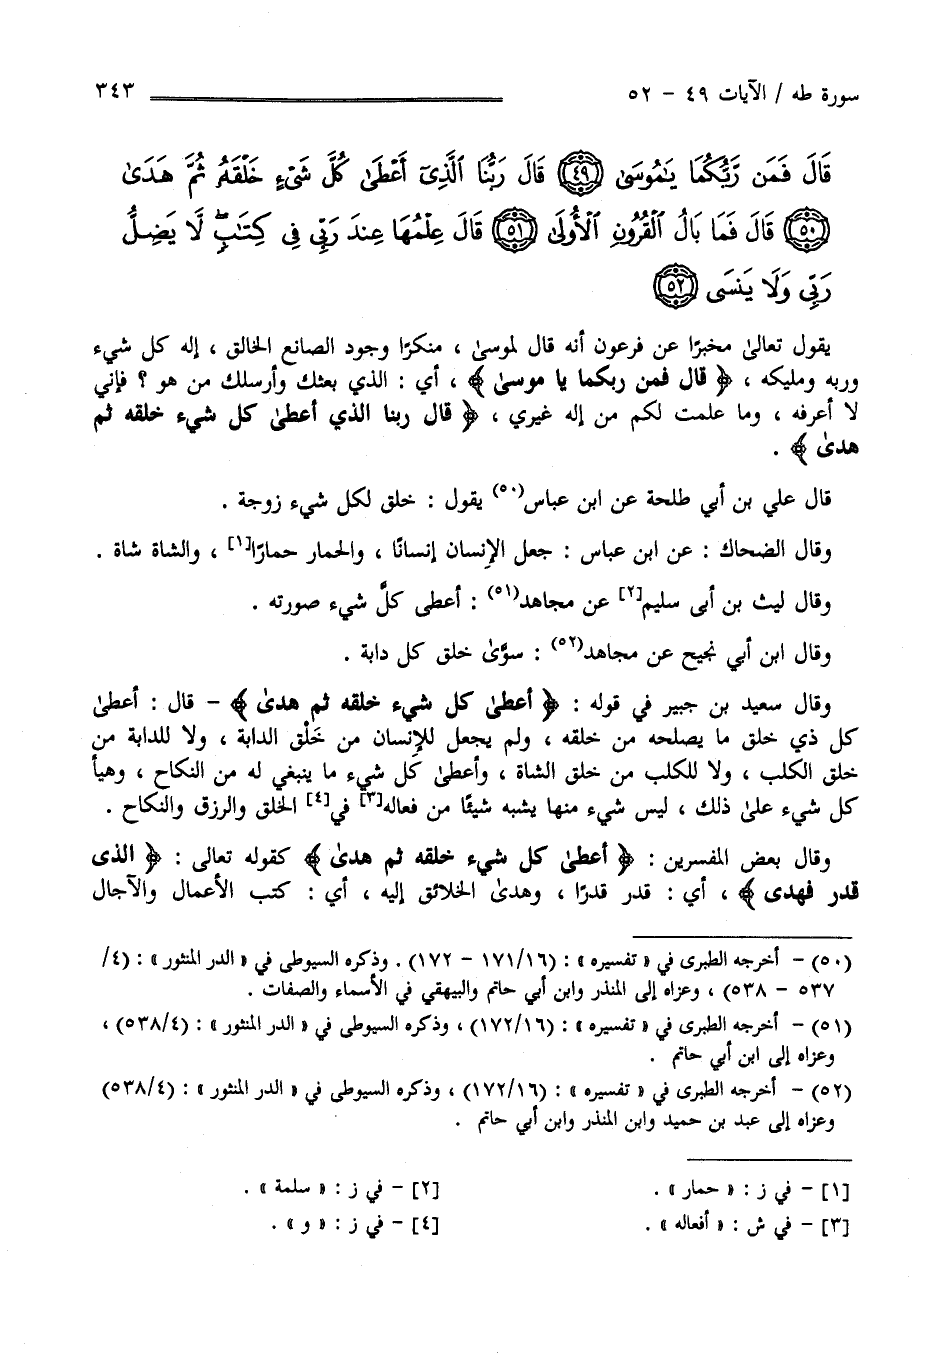 سورة طه / الآيات ٤٩ - ٥٢ ٣٤٣
قَالَ فَمَن رَّبُّكُمَا يَٰمُوسَىٰ ﴿٤٩﴾ قَالَ رَبُّنَا ٱلَّذِىٓ أَعْطَىٰ كُلَّ شَىْءٍ خَلْقَهُۥ ثُمَّ هَدَىٰ
﴿٥٠﴾ قَالَ فَمَا بَالُ ٱلْقُرُونِ ٱلْأُولَىٰ ﴿٥١﴾ قَالَ عِلْمُهَا عِندَ رَبِّى فِى كِتَٰبٍۖ لَّا يَضِلُّ
رَبِّى وَلَا يَنسَى ﴿٥٢﴾
يقول تعالىٰ مخبرًا عن فرعون أنه قال لموسىٰ ، منكرًا وجود الصانع الخالق ، إله كل شيء
وربه ومليكه ، ﴿ قال فمن ربكما يا موسىٰ ﴾ ، أي : الذي بعثك وأرسلك من هو ؟ فإني
لا أعرفه ، وما علمت لكم من إله غيري ، ﴿ قال ربنا الذي أعطىٰ كل شيء خلقه ثم
هدىٰ ﴾ .
قال علي بن أبي طلحة عن ابن عباس(٥٠) يقول : خلق لكل شيء زوجة .
وقال الضحاك : عن ابن عباس : جعل الإنسان إنسانًا ، والحمار حمارًا[١] ، والشاة شاة .
وقال ليث بن أبى سليم[٢] عن مجاهد(٥١) : أعطى كلَّ شيء صورته .
وقال ابن أبي نجيح عن مجاهد(٥٢) : سوَّىٰ خلق كل دابة .
وقال سعيد بن جبير في قوله : ﴿ أعطىٰ كل شيء خلقه ثم هدىٰ ﴾ - قال : أعطىٰ
كل ذي خلق ما يصلحه من خلقه ، ولم يجعل للإنسان من خَلْق الدابة ، ولا للدابة من
خلق الكلب ، ولا للكلب من خلق الشاة ، وأعطىٰ كل شيء ما ينبغي له من النكاح ، وهيأ
كل شيء علىٰ ذلك ، ليس شيء منها يشبه شيئًا من فعاله[٣] في[٤] الخلق والرزق والنكاح .
وقال بعض المفسرين : ﴿ أعطىٰ كل شيء خلقه ثم هدىٰ ﴾ كقوله تعالى : ﴿ الذى
قدر فهدى ﴾ ، أي : قدر قدرًا ، وهدىٰ الخلائق إليه ، أي : كتب الأعمال والآجال
(٥٠) - أخرجه الطبرى في « تفسيره » : (١٧١/١٦ - ١٧٢) . وذكره السيوطى في « الدر المنثور » : (٤/
٥٣٧ - ٥٣٨) ، وعزاه إلى المنذر وابن أبي حاتم والبيهقي في الأسماء والصفات .
(٥١) - أخرجه الطبرى في « تفسيره » : (١٧٢/١٦) ، وذكره السيوطى في « الدر المنثور » : (٥٣٨/٤) ،
وعزاه إلى ابن أبي حاتم .
(٥٢) - أخرجه الطبرى في « تفسيره » : (١٧٢/١٦) ، وذكره السيوطى في « الدر المنثور » : (٥٣٨/٤)
وعزاه إلى عبد بن حميد وابن المنذر وابن أبي حاتم .
[١] - في ز : « حمار » . [٢] - في ز : « سلمة » .
[٣] - في ش : « أفعاله » . [٤] - في ز : « و » .